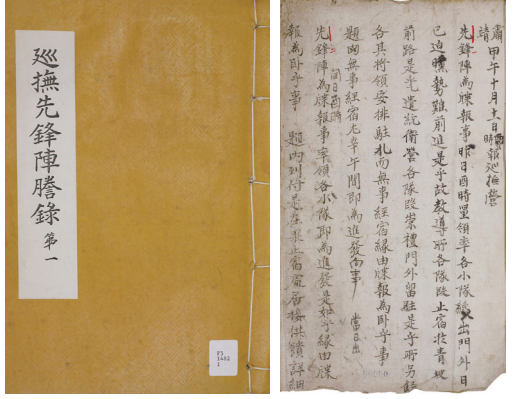 巡撫先鋒陣謄錄 第一
甲午十月十一日 時 報巡撫營
先鋒陣爲牒報事昨日酉時量領率各小隊 出門外日
已迫曛勢難前進是乎故敎導所各隊段止宿於靑坡
前路是乎遣統衛營各隊段崇禮門外留駐是乎所另飭
各其將領安排駐札而無事經宿緣由牒報爲卧乎事
題內無事經宿尤幸午間卽爲進發向事 當日出
同日酉時
先鋒陣爲牒報事率領各小隊卽爲進發是如乎緣由牒
報爲卧乎事 題內到付是在果止宿處 接供饋詳細